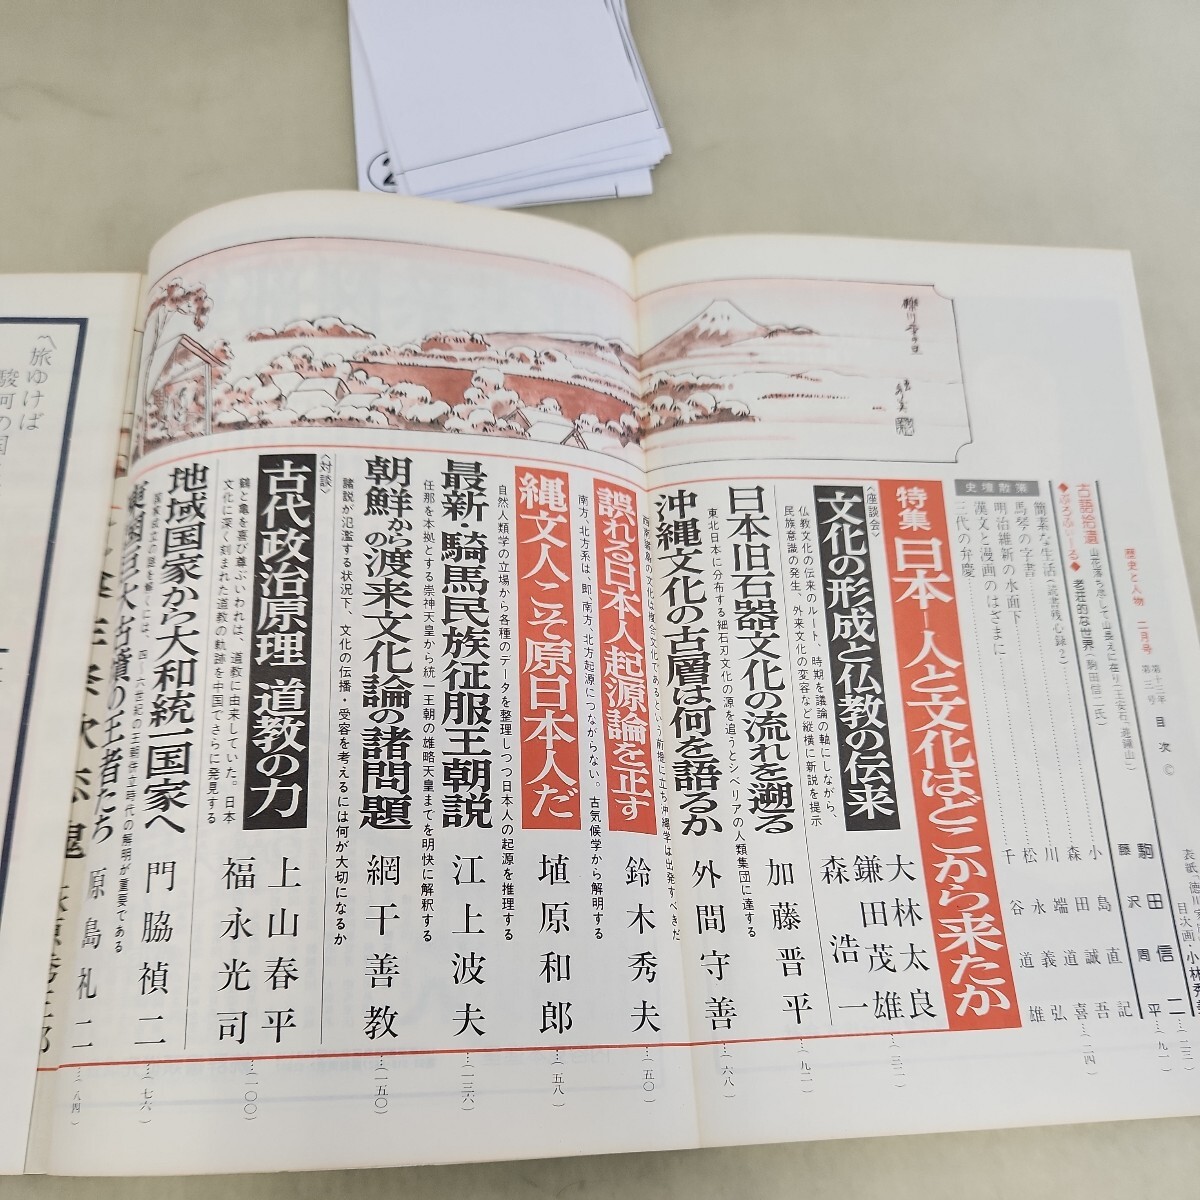 歴史と人物 二月号 第十三年 第二号 目次 ©
古語拾遺 山花落ち尽して山長えに在り(王安石「遊鐘山」) 駒田信二…(二三)
◆ぷろふぃーる◆ 老荘的な世界〈駒田信二氏〉 藤沢周平…(九一)
史壇散策
簡素な生活〈読書残心録2〉
馬琴の字書
明治維新の水面下
漢文と漫画のはざまに
三代の弁慶
…(二四)
特集 日本―人と文化はどこから来たか
〈座談会〉
文化の形成と仏教の伝来
仏教文化の伝来のルート、時期を議論の軸にしながら、
民族意識の発生、外来文化の変容など縦横に新説を提示
大林太良
鎌田茂雄
森浩一
…(三二)
日本旧石器文化の流れを遡る
東北日本に分布する細石刃文化の源を追うとシベリアの人類集団に達する
加藤晋平…(九二)
沖縄文化の古層は何を語るか
外間守善…(六八)
誤れる日本人起源論を正す
南方、北方系は、即、南方、北方起源につながらない。古気候学から解明する
鈴木秀夫…(五〇)
縄文人こそ原日本人だ
自然人類学の立場から各種のデータを整理しつつ日本人の起源を推理する
埴原和郎…(五八)
最新・騎馬民族征服王朝説
任那を本拠とする崇神天皇から統一王朝の雄略天皇までを明快に解釈する
江上波夫…(一三六)
朝鮮からの渡来文化論の諸問題
諸説が氾濫する状況下、文化の伝播・受容を考えるには何が大切になるか
網干善教…(一五〇)
〈対談〉
古代政治原理 道教の力
鶴と亀を喜び尊ぶいわれは、道教に由来していた。日本
文化に深く刻まれた道教の軌跡を中国でさらに発見する
上山春平
福永光司
…(一〇〇)
地域国家から大和統一国家へ
門脇禎二…(七六)
東国巨大古墳の王者たち
原島礼二…(八四)
〽旅ゆけば
駿河の国
②